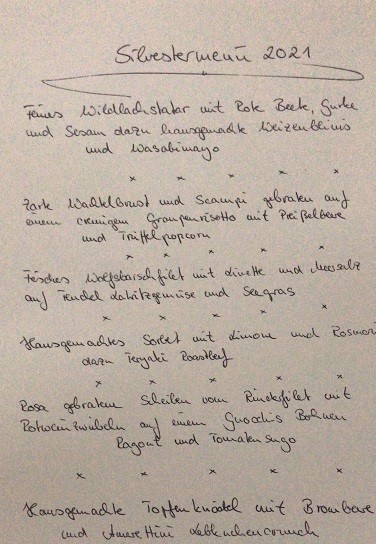 Silvestermenü 2021
Feines Wildlachstatar mit Rote Beete, Gurke
und Sesam dazu hausgemachte Weizenblinis
und Wasabimayo
x x x x x
Zarte Wachtelbrust und Scampi gebraten auf
einem cremigem Graupenrisotto mit Preißelbeere
und Trüffelpopcorn
x x x x x
Frisches Wolfsbarschfilet mit Limette und Meersalz
auf Fenchel und Seegras
x x x x x
Hausgemachtes Sorbet mit Limone und Rosmarin
dazu Teryaki Roastbeef
x x x x x
Rosa gebratene Scheiben vom Rinderfilet mit
Rotweinzwiebeln auf einem Gnocchis Bohnen
Ragout und Tomatensugo
x x x x x
Hausgemachte Topfenknödel mit Brombeere
und Amarettini Lebkuchencrunch